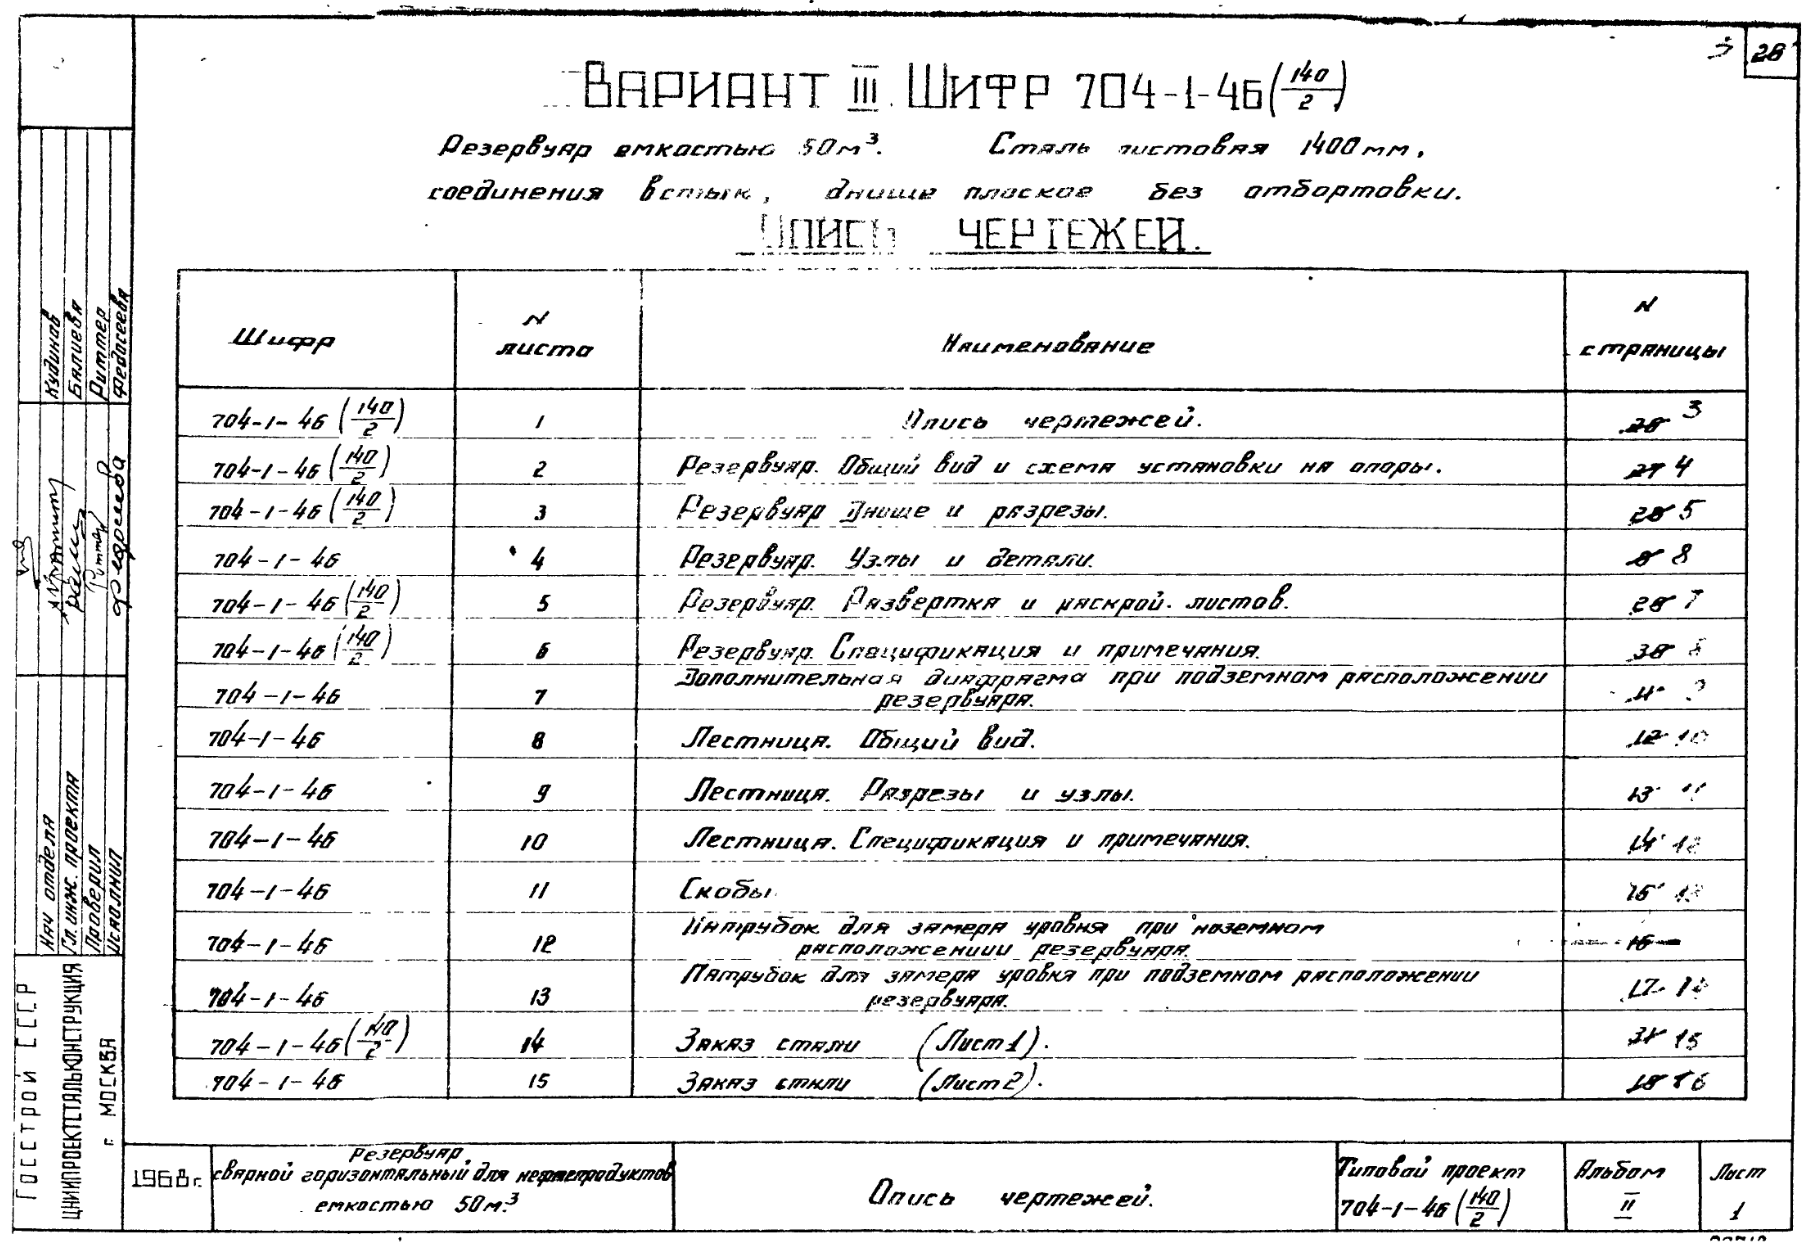 3 28
Вариант III Шифр 704-1-46 (140/2)
Резервуар емкостью 50м³. Сталь листовая 1400мм,
соединения встык, днище плоское без отбортовки.
Опись чертежей.
Шифр N листа Наименование N страницы
704-1-46 (140/2) 1 Опись чертежей. 28 3
704-1-46 (140/2) 2 Резервуар. Общий вид и схема установки на опоры. 27 4
704-1-46 (140/2) 3 Резервуар Днище и разрезы. 28 5
704-1-46 4 Резервуар. Узлы и детали. 8
704-1-46 (140/2) 5 Резервуар. Развертка и раскрой листов. 7
704-1-46 (140/2) 6 Резервуар. Спецификация и примечания. 30 8
704-1-46 7 Дополнительная диафрагма при подземном расположении
резервуара. 11 9
704-1-46 8 Лестница. Общий вид. 12 10
704-1-46 9 Лестница. Разрезы и узлы. 13 11
704-1-46 10 Лестница. Спецификация и примечания. 14 12
704-1-46 11 Скобы 15 13
704-1-46 12 Патрубок для замера уровня при наземном
расположении резервуара. 16
704-1-46 13 Патрубок для замера уровня при подземном расположении
резервуара. 17 14
704-1-46 (140/2) 14 Заказ стали (Лист 1). 31 15
704-1-46 15 Заказ стали (Лист 2). 18 16
Кудинов
Балиева
Риттер
Федосеева
Нач отдела
Гл. инж. проекта
Проверил
Исполнил
Госстрой СССР
ЦНИИПРОЕКТСТАЛЬКОНСТРУКЦИЯ
г. Москва
1968г.
Резервуар
сварной горизонтальный для нефтепродуктов
емкостью 50м³
Опись чертежей.
Типовой проект
704-1-46 (140/2)
Альбом
II
Лист
1